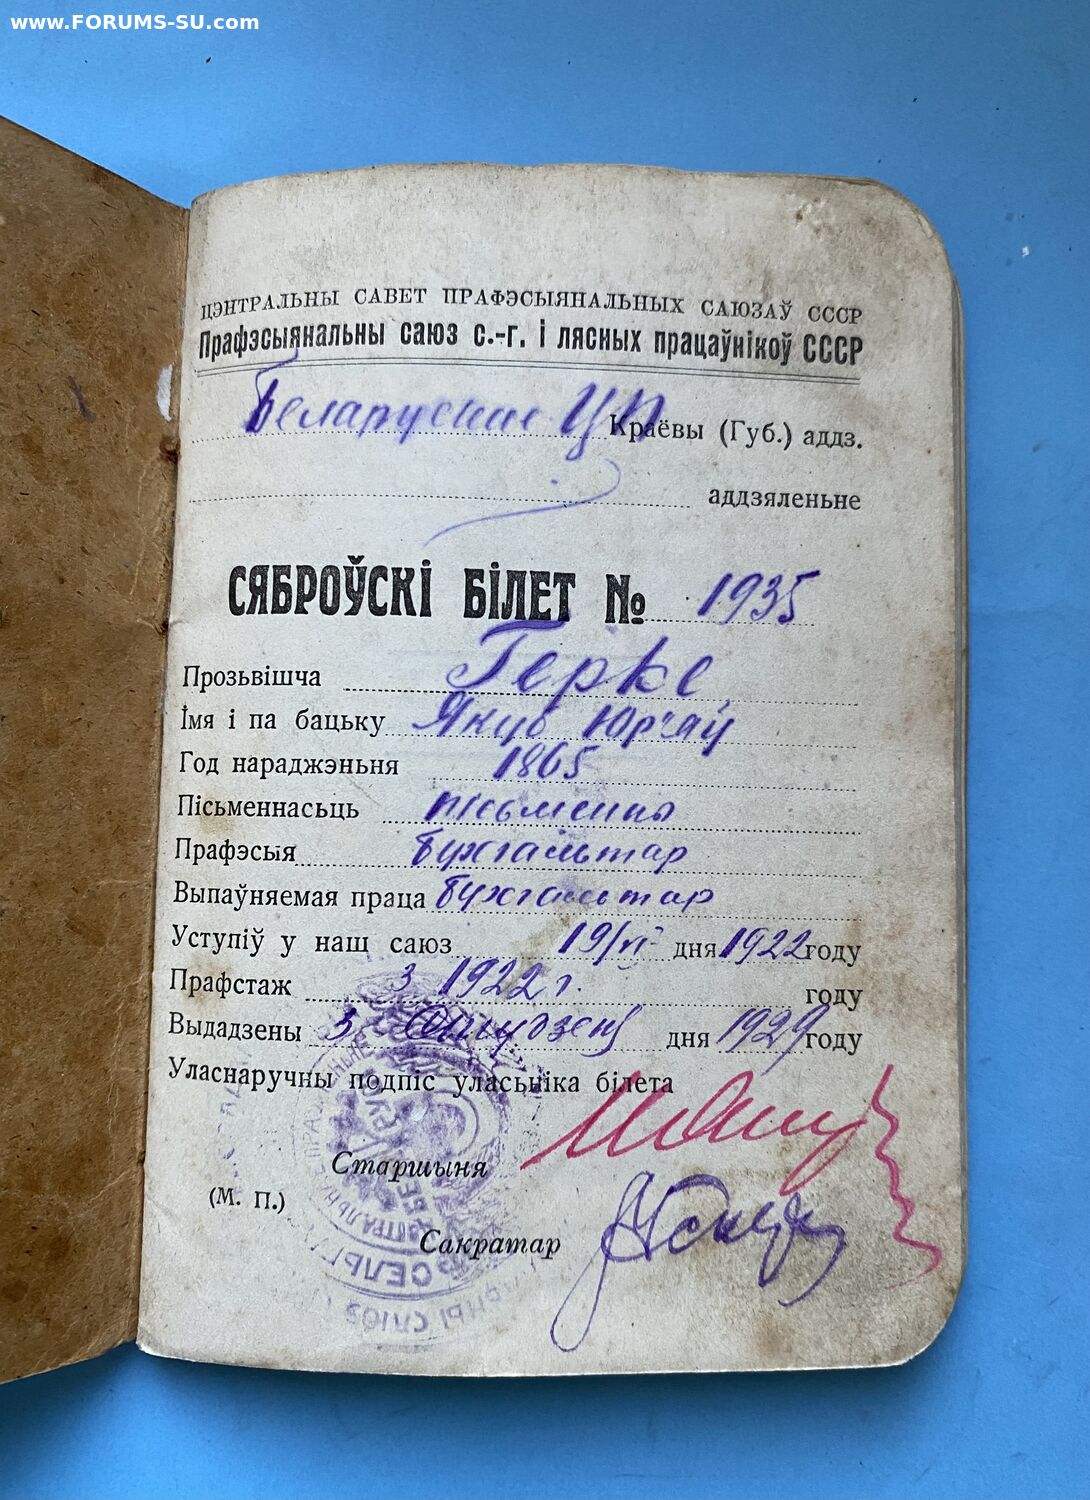 www.FORUMS-SU.com
ЦЭНТРАЛЬНЫ САВЕТ ПРАФЭСЫЯНАЛЬНЫХ САЮЗАЎ СССР
Прафэсыянальны саюз с.-г. і лясных працаўнікоў СССР
Беларускае ЦП Краёвы (Губ.) аддз.
аддзяленьне
СЯБРОЎСКІ БІЛЕТ № 1935
Прозьвішча Герке
Імя і па бацьку Якуб Юр'яў
Год нараджэньня 1865
Пісьменнасьць пісьменны
Прафэсыя Бухгальтар
Выпаўняемая праца Бухгальтар
Уступіў у наш саюз 19/VI дня 1922 году
Прафстаж з 1922 г. году
Выдадзены 3 Студзеня дня 1929 году
Уласнаручны подпіс уласьніка білета
Старшыня
(М. П.)
Сакратар